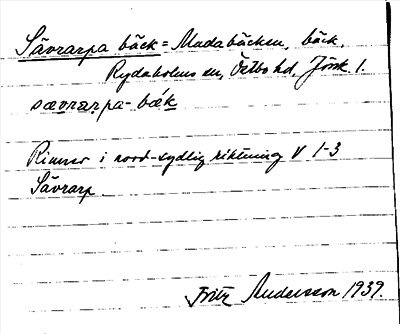 Sävrarpa bäck = Madabäcken, bäck,
Rydaholms sn, Östbo hd, Jönk l.
sævrarpa-bæk
Rinner i nord-sydlig riktning V 1-3
Sävrarp
Fritz Andersson 1939.